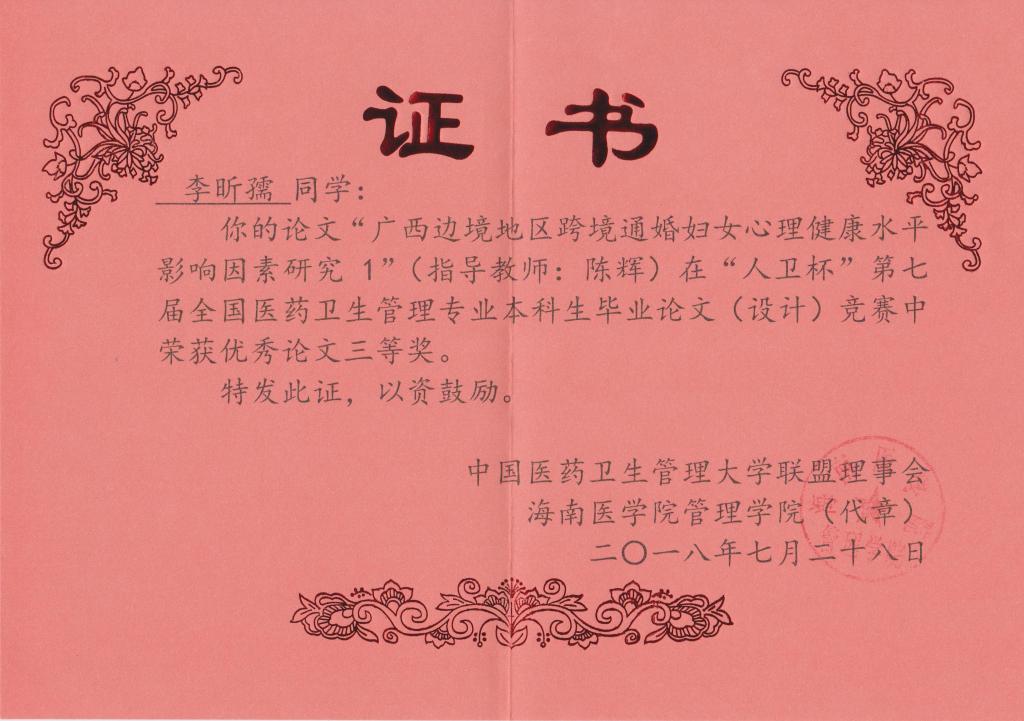 证书
李昕孺 同学：
你的论文“广西边境地区跨境通婚妇女心理健康水平
影响因素研究 1”（指导教师：陈辉）在“人卫杯”第七
届全国医药卫生管理专业本科生毕业论文（设计）竞赛中
荣获优秀论文三等奖。
特发此证，以资鼓励。
中国医药卫生管理大学联盟理事会
海南医学院管理学院（代章）
二〇一八年七月二十八日
管理学院